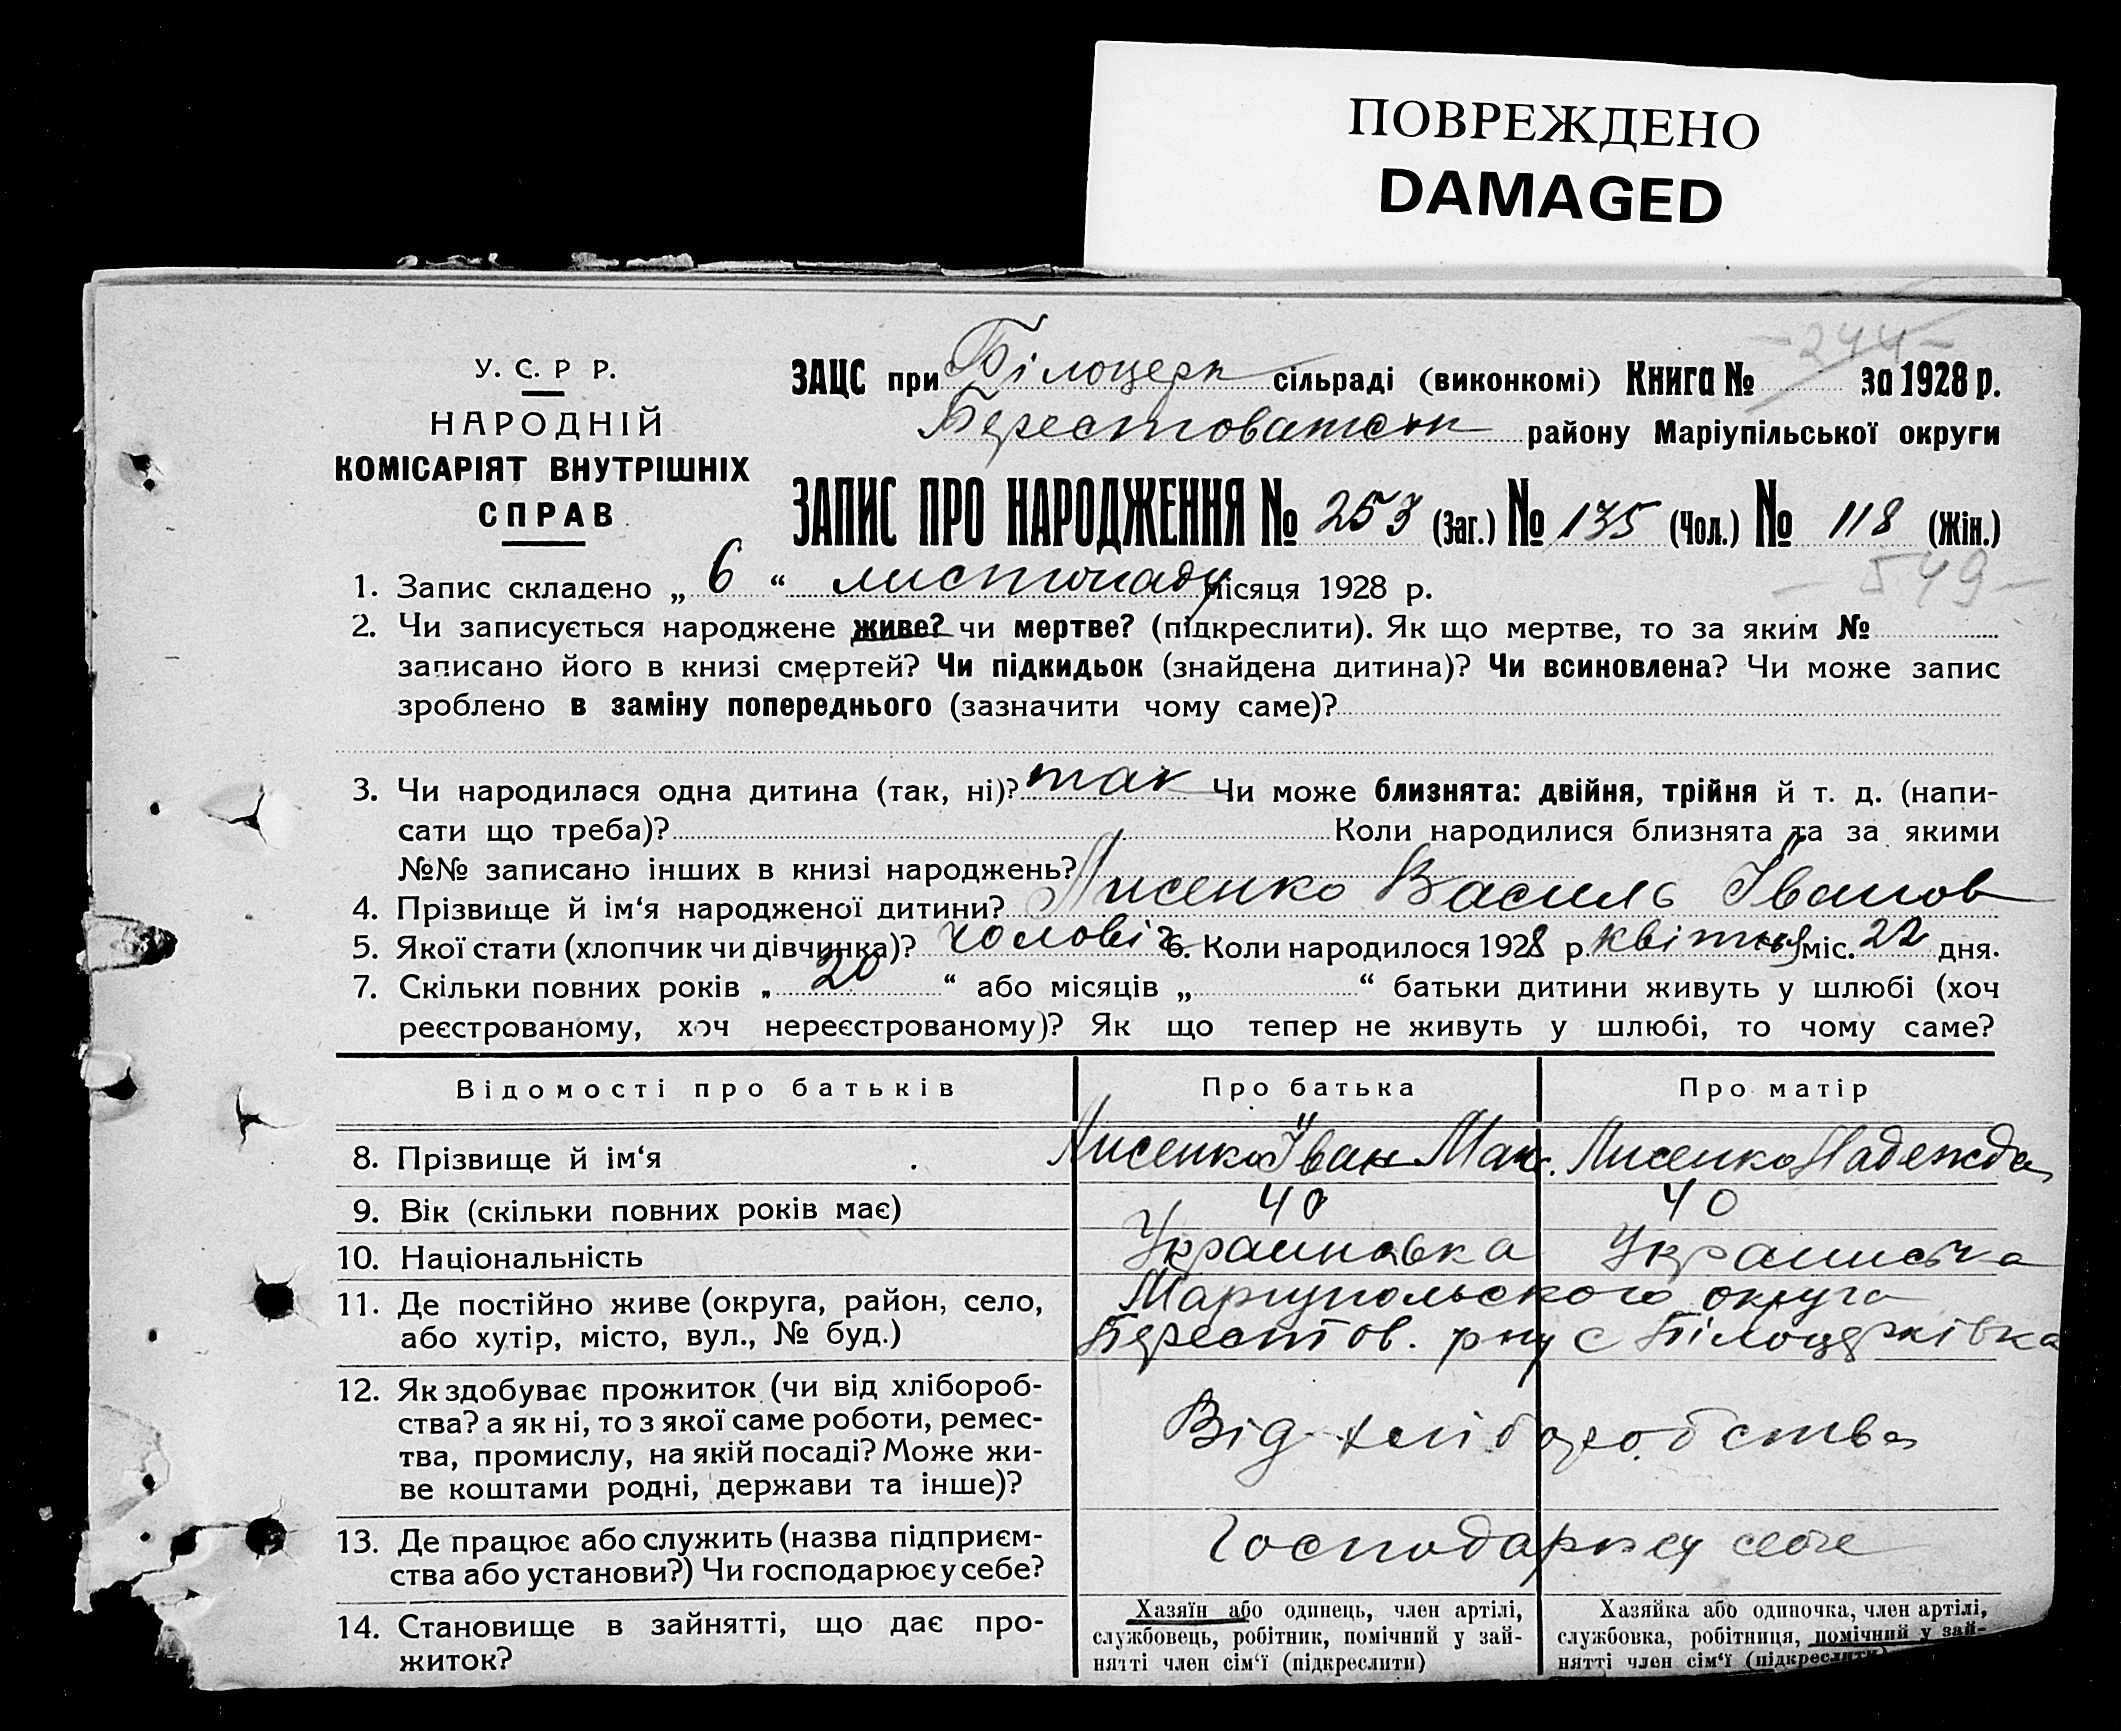 ПОВРЕЖДЕНО
DAMAGED
-244-
У. С. Р Р.
НАРОДНІЙ
КОМІСАРІЯТ ВНУТРІШНІХ
СПРАВ
ЗАЦС при Білоцерк сільраді (виконкомі) Книга № за 1928 р.
Берестоватськ району Маріупільської округи
ЗАПИС ПРО НАРОДЖЕННЯ № 253 (Заг.) № 135 (Чол.) № 118 (Жін.)
-549-
1. Запис складено „ 6 “ листопаду місяця 1928 р.
2. Чи записується народжене живе? чи мертве? (підкреслити). Як що мертве, то за яким №
записано його в книзі смертей? Чи підкидьок (знайдена дитина)? Чи всиновлена? Чи може запис
зроблено в заміну попереднього (зазначити чому саме)?
3. Чи народилася одна дитина (так, ні)? так Чи може близнята: двійня, трійня й т. д. (напи-
сати що треба)? Коли народилися близнята та за якими
№№ записано інших в книзі народжень?
4. Прізвище й ім‘я народженої дитини? Лисенко Василь Іванов
5. Якої стати (хлопчик чи дівчинка)? чоловіч 6. Коли народилося 1928 р. квітня міс. 22 дня.
7. Скільки повних років „ 20 “ або місяців „ “ батьки дитини живуть у шлюбі (хоч
реєстрованому, хоч нереєстрованому)? Як що тепер не живуть у шлюбі, то чому саме?
Відомості про батьків Про батька Про матір
8. Прізвище й ім‘я Лисенко Іван Лисенко Надежда
9. Вік (скільки повних років має) 40 40
10. Національність Украиновка Украинська
11. Де постійно живе (округа, район, село, Мариупольского округа
або хутір, місто, вул., № буд.) Берестов. рну с Білоцерківка
12. Як здобуває прожиток (чи від хлібороб-
ства? а як ні, то з якої саме роботи, ремес- Від хліборобства
тва, промислу, на якій посаді? Може жи-
ве коштами родні, держави та інше)?
13. Де працює або служить (назва підприєм- Господарює у себе
ства або установи?) Чи господарює у себе?
14. Становище в зайнятті, що дає про-
житок?
Хазяїн або одинець, член артілі,
службовець, робітник, помічний у зай-
нятті член сім‘ї (підкреслити)
Хазяйка або одиночка, член артілі,
службовка, робітниця, помічний у зай-
нятті член сім‘ї (підкреслити)